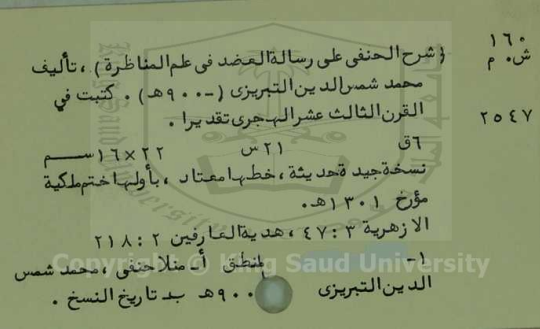 ١٦٠
ش . م
٢٥٤٧
( شرح الحنفى على رسالة العضد فى علم المناظرة ) ، تأليف
محمد شمس الدين التبريزى ( - ٩٠٠هـ ) . كتبت في
القرن الثالث عشر الهجرى تقديرا .
٦ق ٢١س ٢٢×١٦سم
نسخة جيدة حديثة ، خطها معتاد ، بأولها ختم ملكية
مؤرخ ١٣٠١هـ .
الازهرية ٣ : ٤٧ ، هدية العارفين ٢ : ٢١٨
١- لمنطق أ- منلا حنفى ، محمد شمس
الدين التبريزى ٩٠٠هـ ب- تاريخ النسخ .
Copyright © King Saud University